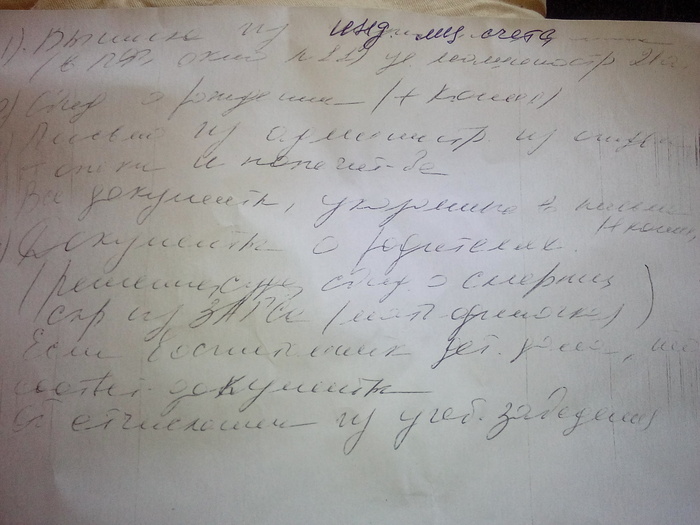 1). Выписка из инд лиц. счета
(в ПФ, окно
) Свид о рождении (+ копия)
Письмо из администр из отдела
опеки и попечит-ва
Все документы, указанные в письме
(+ копии)
) Документы о родителях
(решение суда, свид. о смерти,
спр из ЗАГСа (мать одиночка)
Если воспитанник дет. дома, то
документы
Об отчислении из учеб. заведения